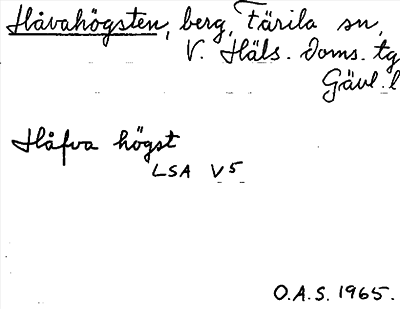 Håvahögsten, berg, Färila sn,
V. Häls. doms. tg
Gävl. l
Håfva högst
LSA V5
O.A.S. 1965.